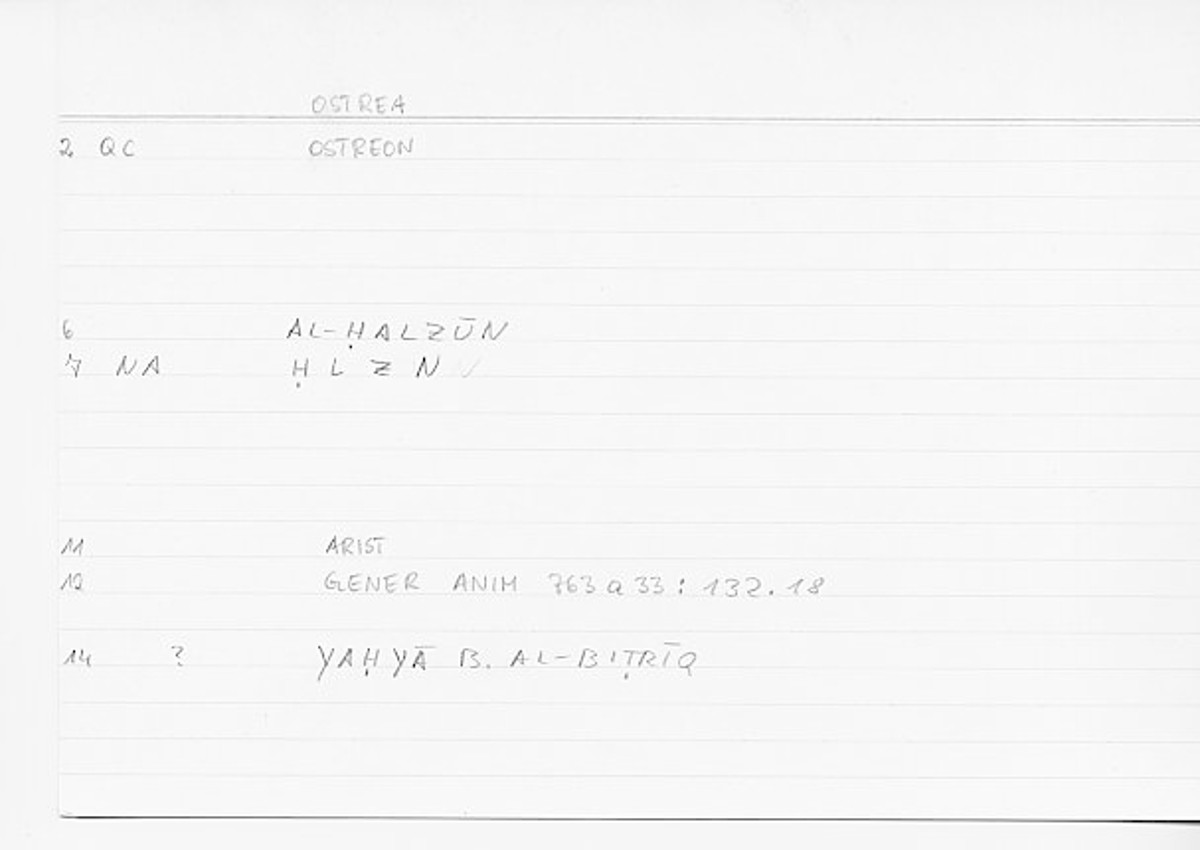 OSTREA
2 QC OSTREON
6 AL-ḤALZŪN
7 NA Ḥ L Z N
11 ARIST
12 GENER ANIM 763 a 33 : 132.18
14 ? YAḤYĀ B. AL-BIṬRĪQ